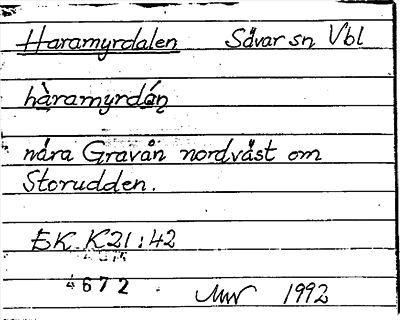 Haramyrdalen Sävar sn Vbl
hàramyrdán
nära Gravån nordväst om
Storudden.
EK K21:42
4672
1992